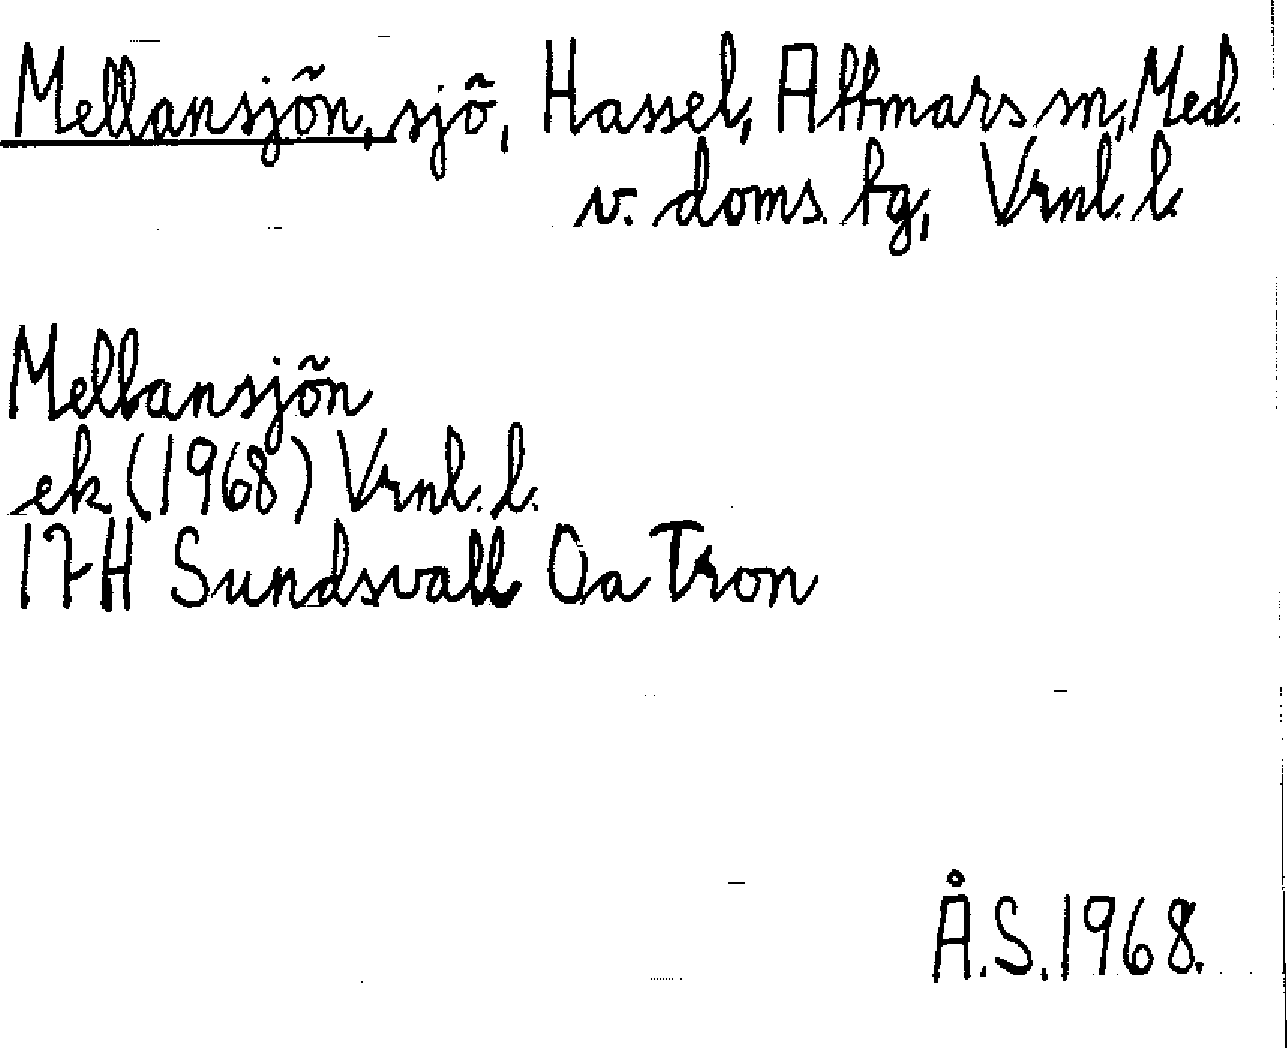 Mellansjön, sjö, Hassel, Attmars sn, Med.
v. doms. tg, Vrnl. l.
Mellansjön
ek (1968) Vrnl. l.
17H Sundsvall Oa Tron
Å.S. 1968.